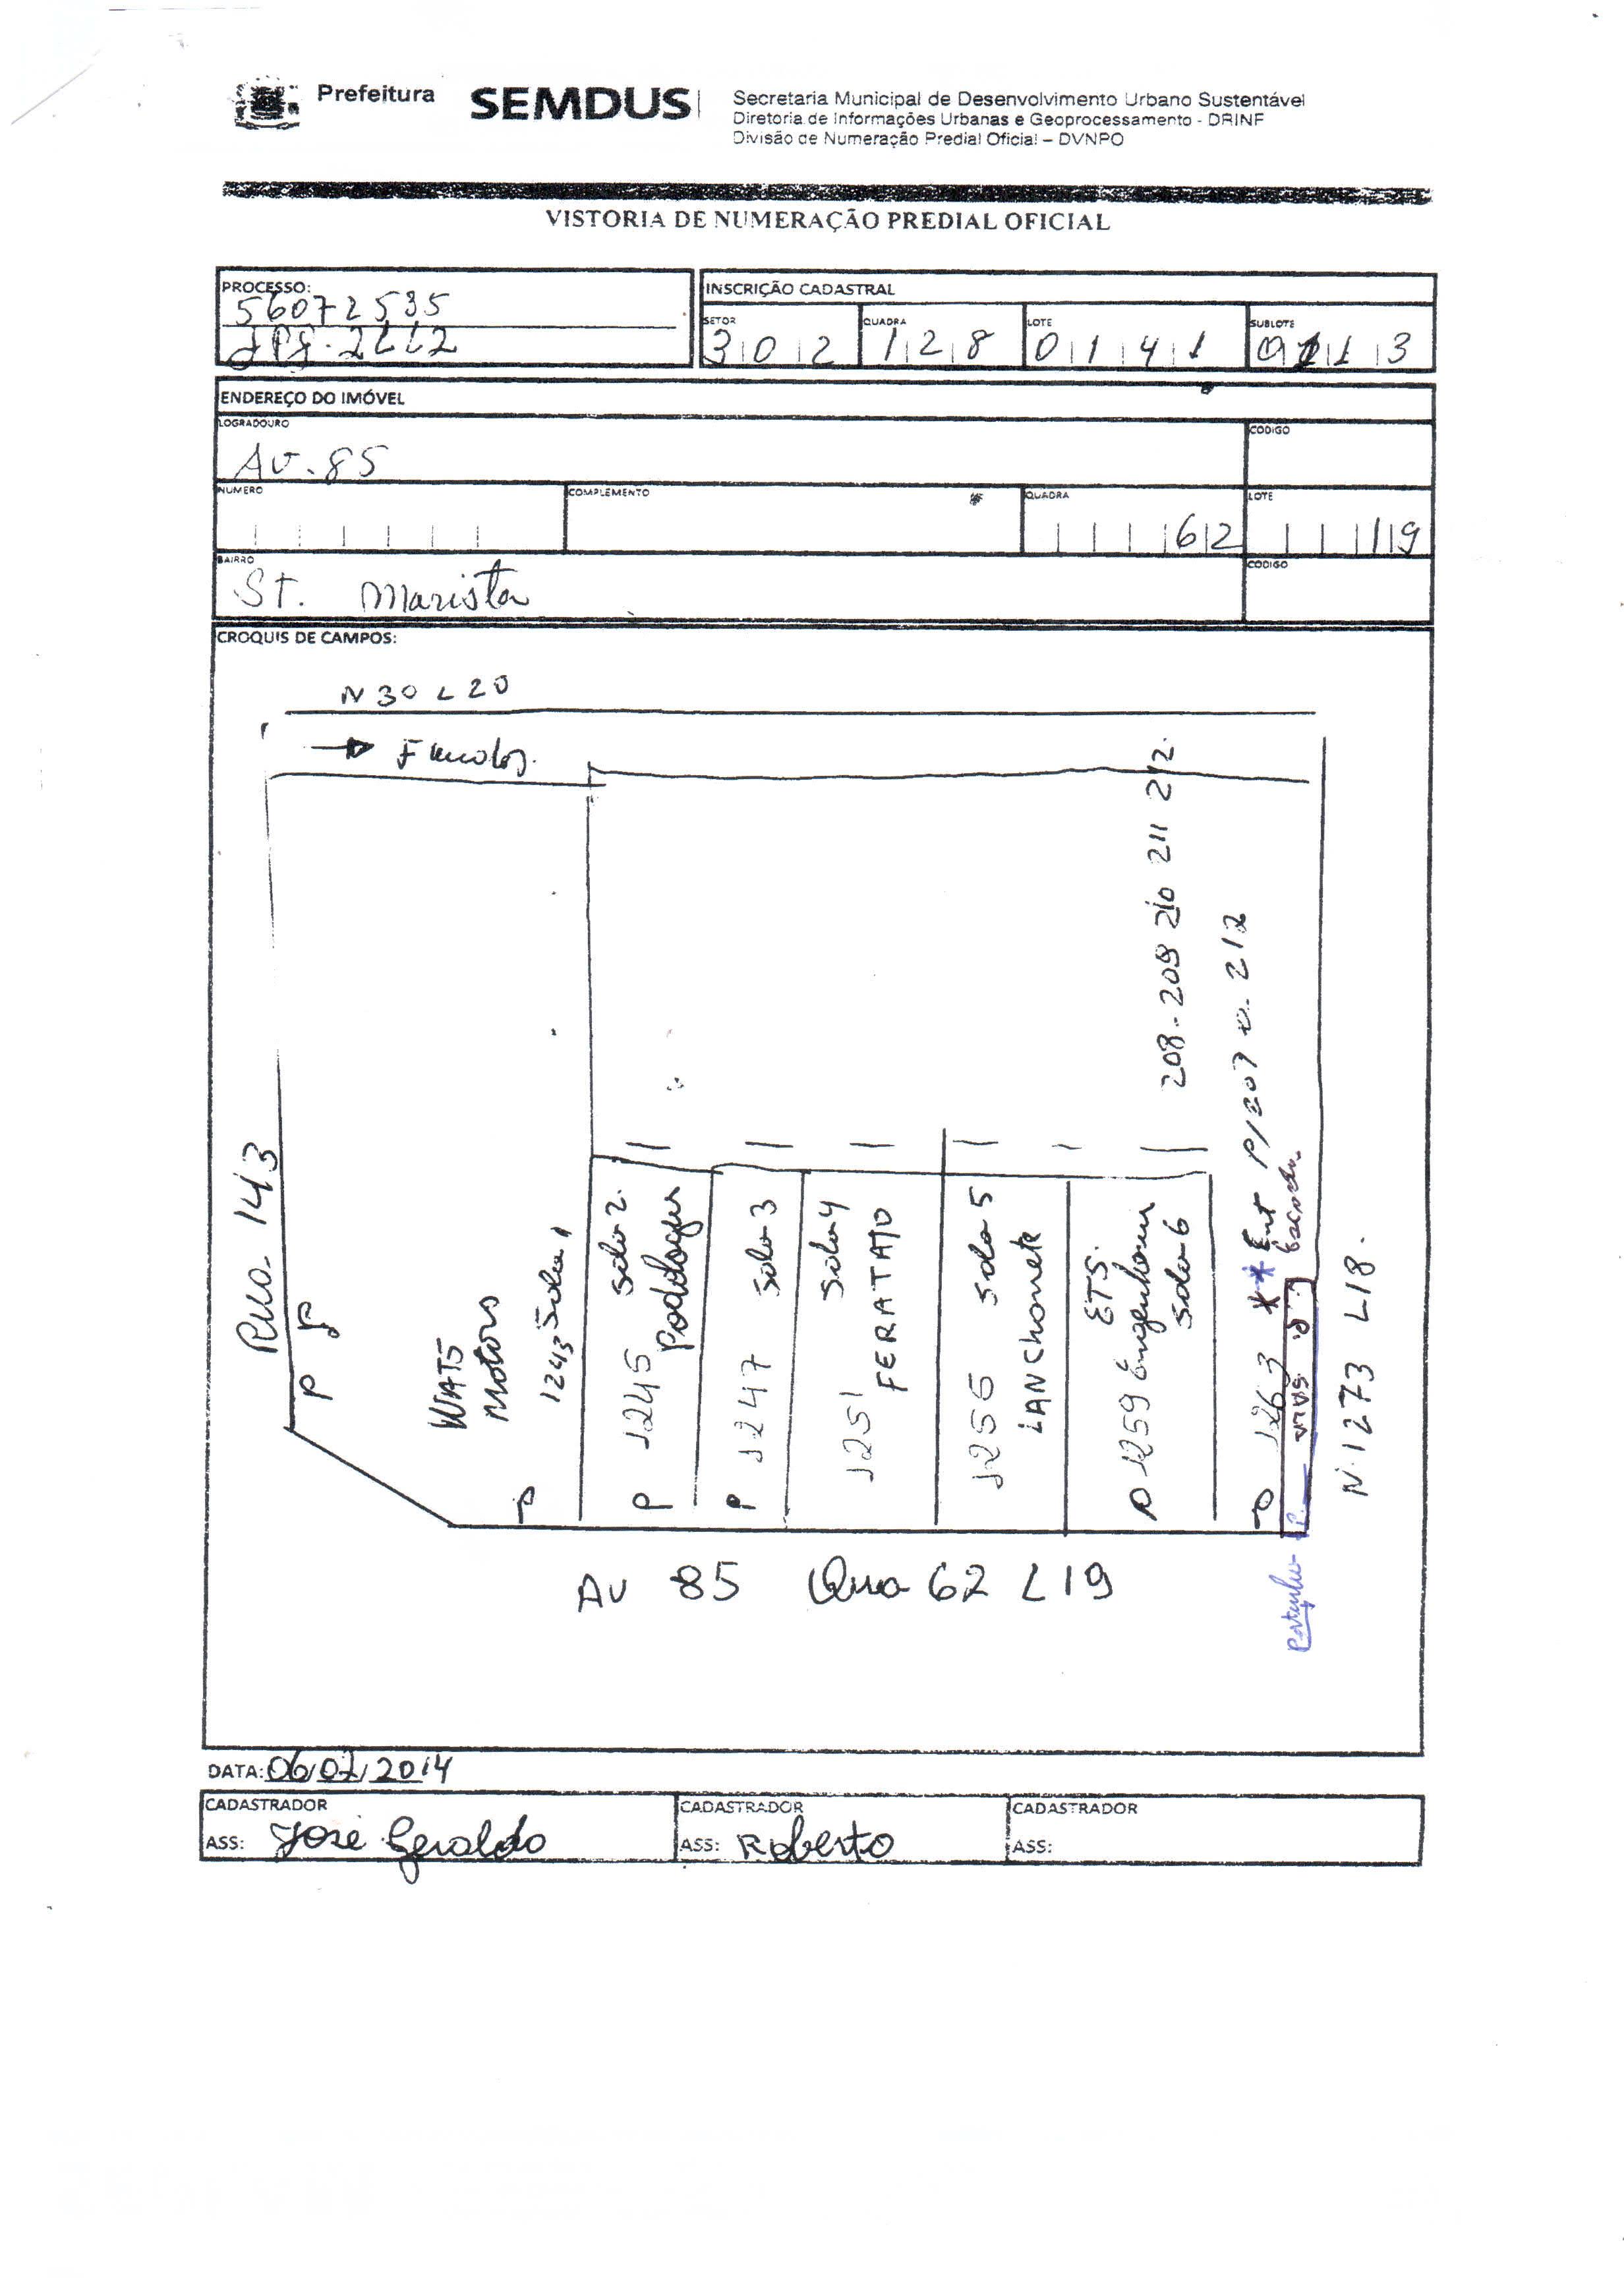 Prefeitura
SEMDUS
Secretaria Municipal de Desenvolvimento Urbano Sustentável
Diretoria de Informações Urbanas e Geoprocessamento - DRINF
Divisão de Numeração Predial Oficial – DVNPO
VISTORIA DE NUMERAÇÃO PREDIAL OFICIAL
PROCESSO:
56072535
INSCRIÇÃO CADASTRAL
SETOR
302
QUADRA
128
LOTE
0141
SUBLOTE
0113
ENDEREÇO DO IMÓVEL
LOGRADOURO
Av. 85
CODIGO
NUMERO
COMPLEMENTO
QUADRA
62
LOTE
19
BAIRRO
ST. Marista
CODIGO
CROQUIS DE CAMPOS:
N 30 L 20
Fundos.
Rua 143
P
WATS
Motors
1243 Sala 1
P 1245 sala 2.
Podologia
P 1247 sala 3
1251 sala 4
FERATATO
1255 sala 5
LANChonete
ETS.
P 1259 Engenharia
sala 6
208 - 209 210 211 212.
P 1263 ** Ent P/207 a 212
Escada
N. 1273 L18.
AV 85 Qua 62 L 19
DATA: 06/07/2014
CADASTRADOR
ASS: José Geraldo
CADASTRADOR
ASS: Roberto
CADASTRADOR
ASS: